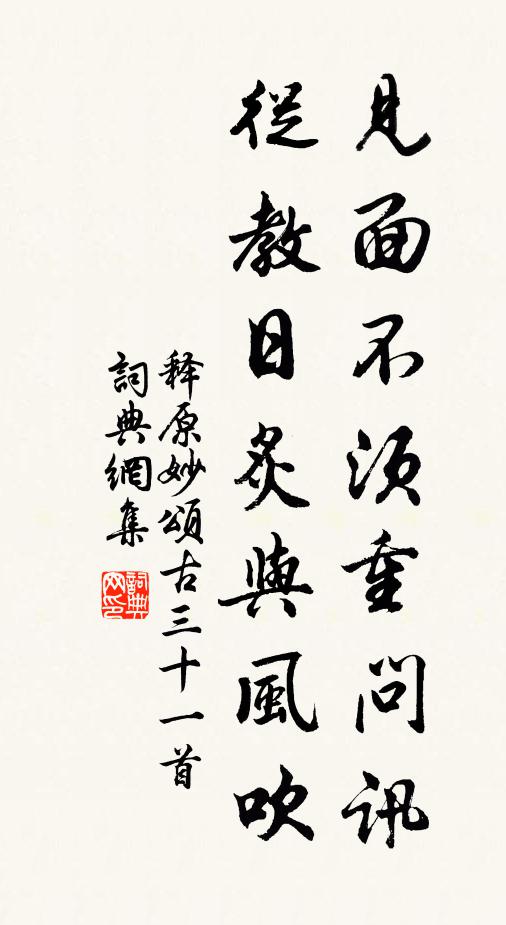 見面不須重問訊
從教日炙與風吹
释原妙頌古三十一首
詞典網集
詞典网印